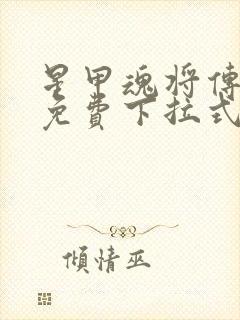 星甲魂将傳
免費下拉式
傾情巫